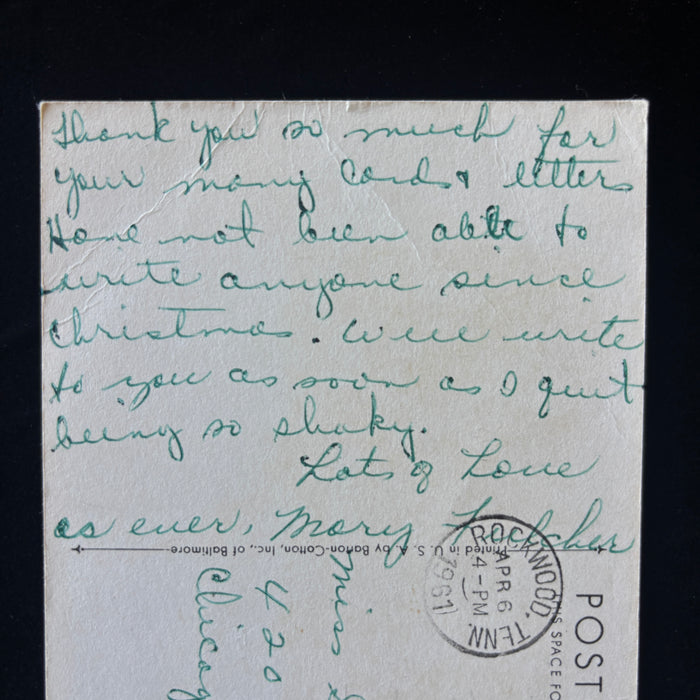 Thank you so much for
your many cards & letters
Have not been able to
write anyone since
Christmas. Will write
to you as soon as I quit
being so shaky.
Lots of Love
as ever, Mary
Printed in U. S. A. by Barton-Cotton, Inc., of Baltimore
ROCKWOOD, TENN.
APR 6
4-PM
1961
POST
THIS SPACE FO
Miss
420
Chicag